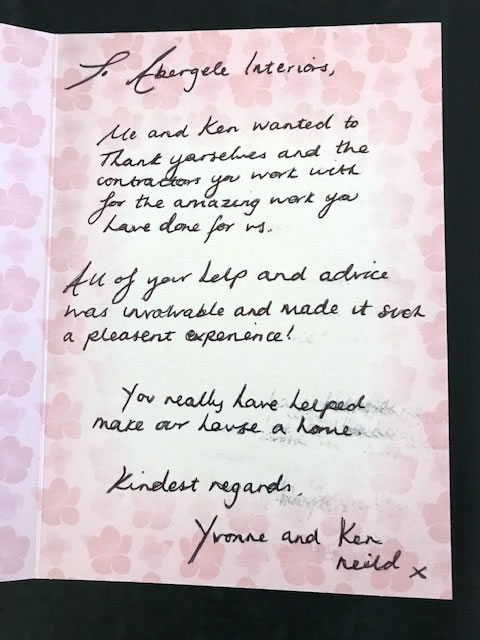 To Abergele Interiors,
Me and Ken wanted to
Thank yourselves and the
contractors you work with
for the amazing work you
have done for us.
All of your help and advice
was invalvable and made it such
a pleasent experience!
You really have helped
make our house a home.
Kindest regards,
Yvonne and Ken
neild x